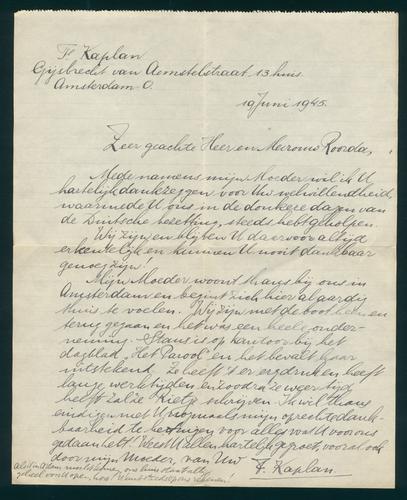 F. Kaplan
Gijsbrecht van Aemstelstraat 13 huis
Amsterdam O.
19 Juni 1945.
Zeer geachte Heer en Mevrouw Roorda,
Mede namens mijn Moeder wil ik U
hartelijk dankzeggen voor Uw welwillendheid,
waarmede U ons in de donkere dagen van
de Duitsche bezetting, steeds hebt geholpen.
Wij zijn en blijven U daarvoor altijd
erkentelijk en kunnen U nooit dankbaar
genoeg zijn.
Mijn Moeder woont thans bij ons in
Amsterdam en begint zich hier al aardig
thuis te voelen. Wij zijn met de boot heen en
terug gegaan en het was een heele onder-
neming. is op kantoor bij het
dagblad „Het Parool" en het bevalt haar
uitstekend. Ze heeft 't erg druk en heeft
lange werktijden en zoodra ze weer tijd
heeft zal ze schrijven. Ik wil thans
eindigen met U nogmaals mijn oprechte dank-
baarheid te betuigen voor alles wat U voor ons
gedaan hebt! Weest U allen hartelijk gegroet, vooral ook
door mijn Moeder, van Uw F. Kaplan
Als U in A'dam mocht komen, ons huis staat altijd
geheel voor U open, hoor!